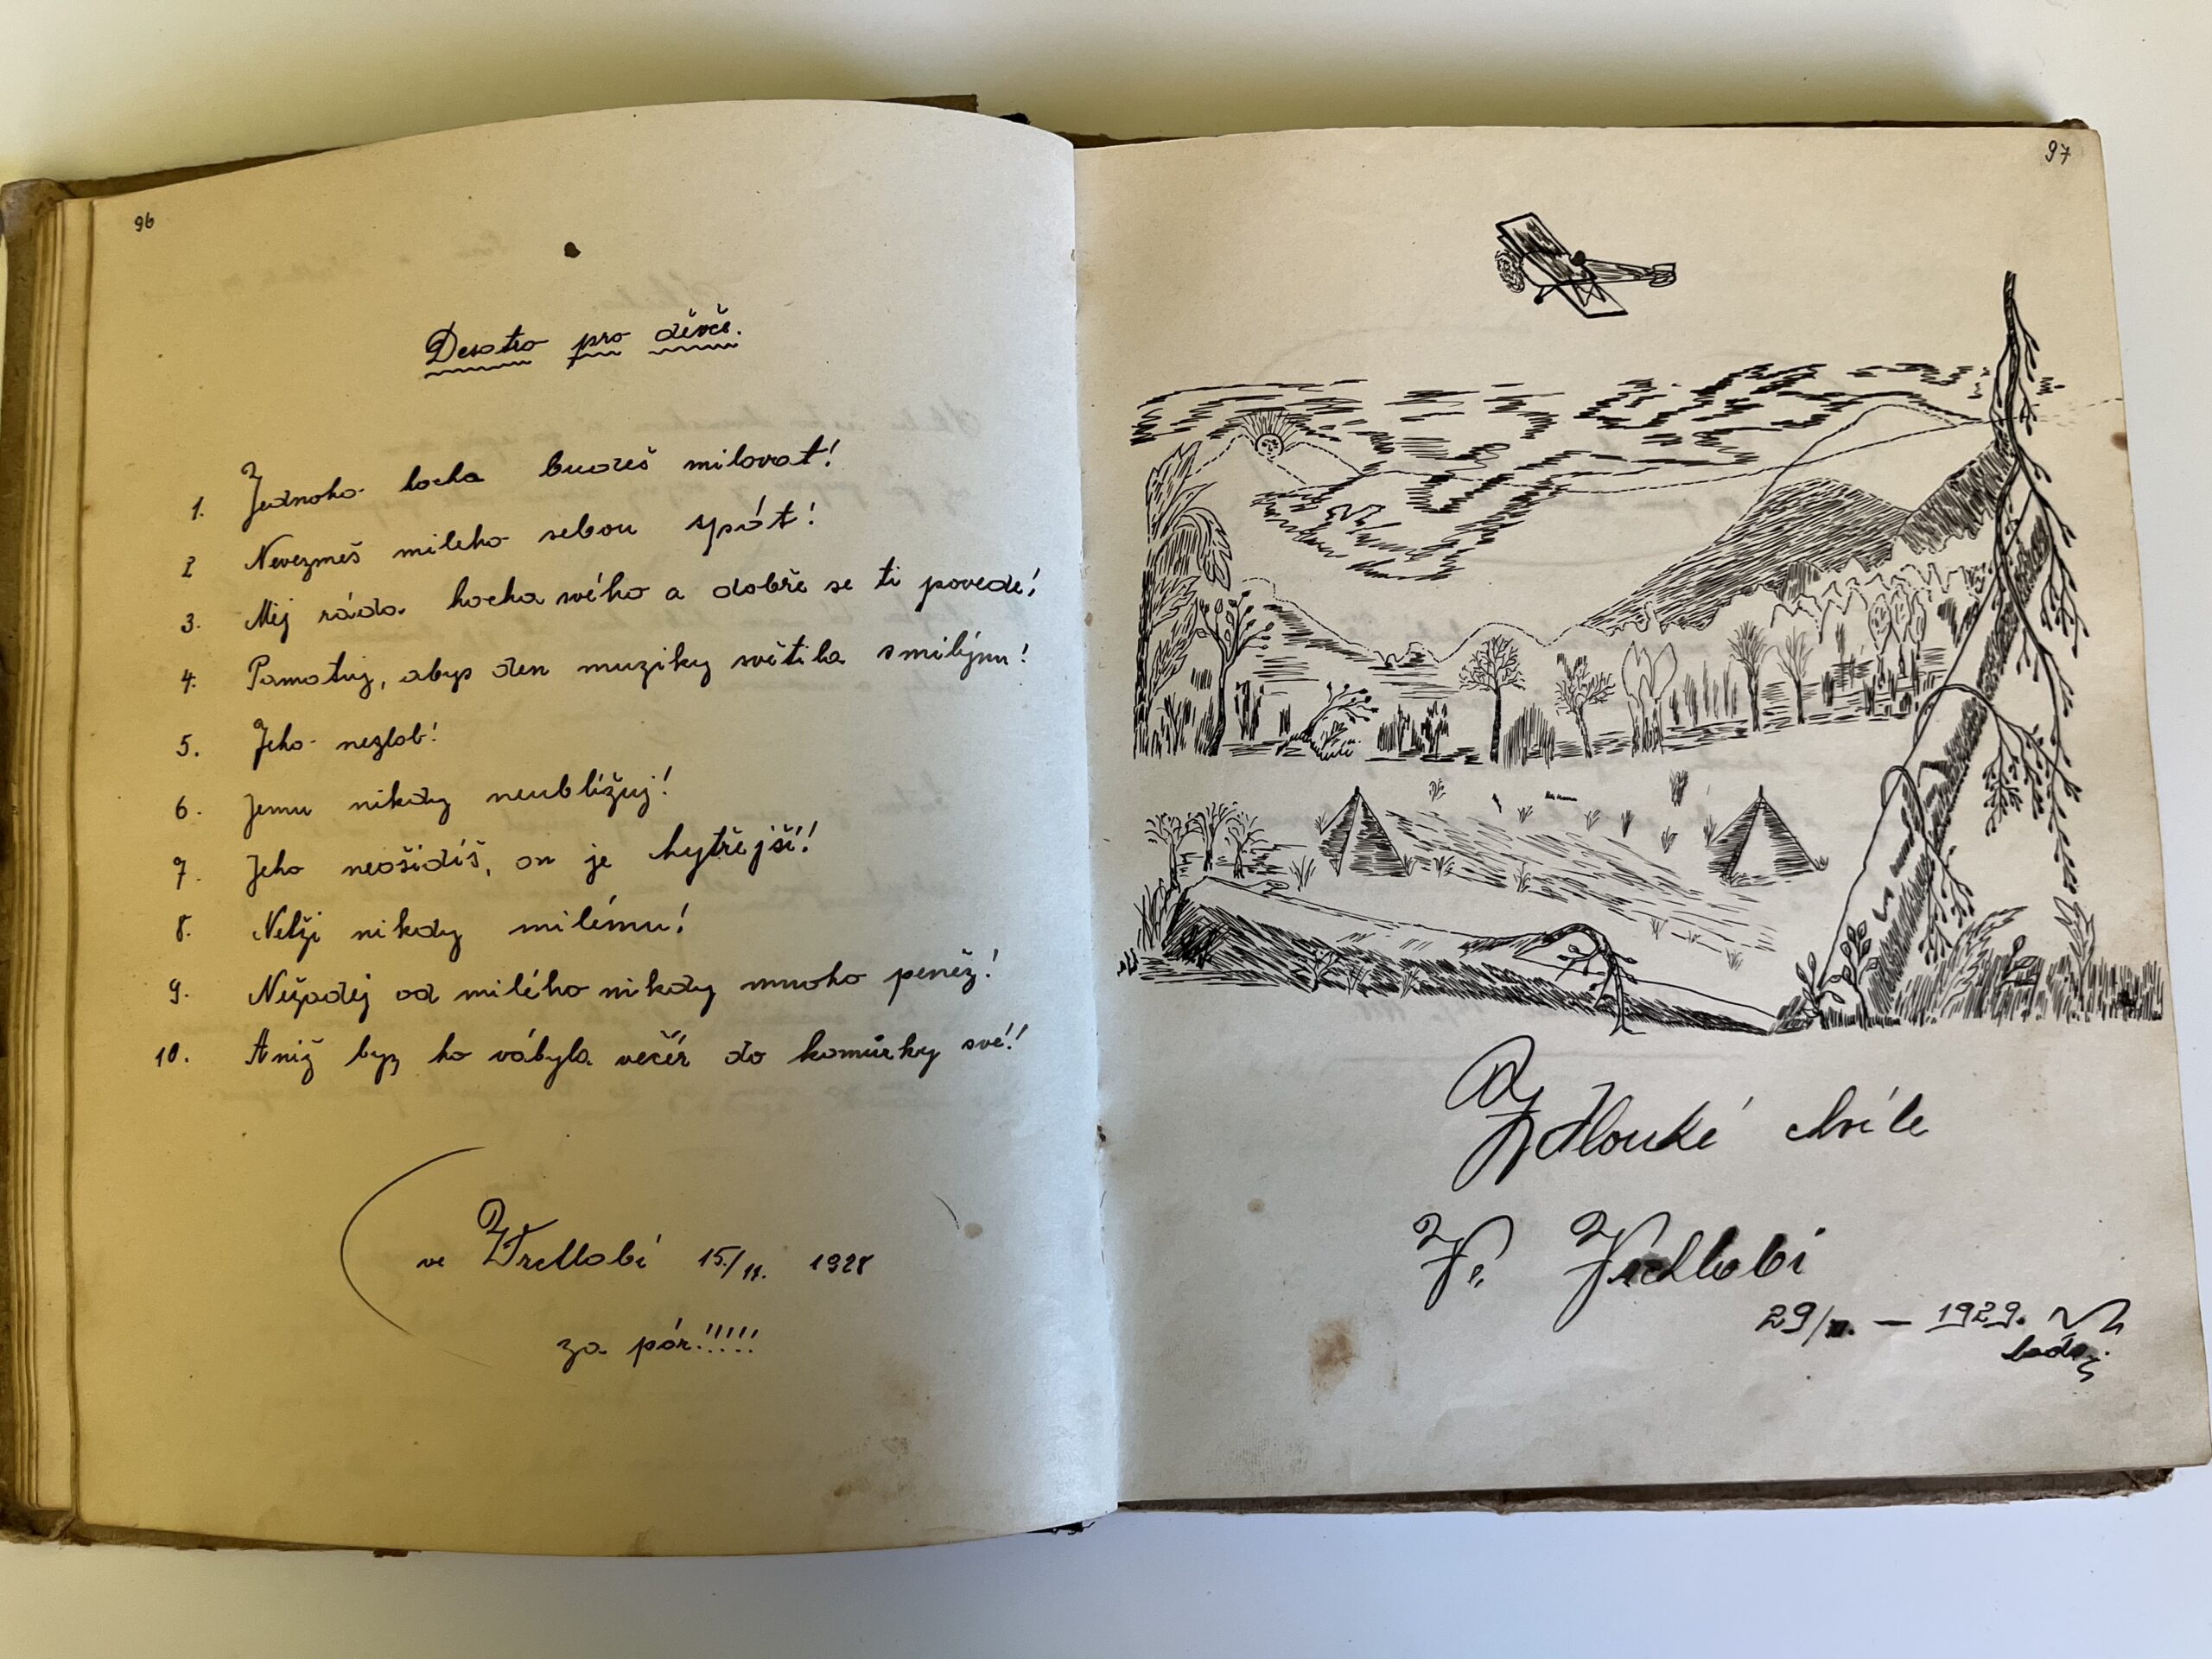 96
Desatro pro děvče.
1. Jednoho hocha budeš milovat!
2 Nevezmeš mileho sebou spát!
3. Měj ráda hocha svého a dobře se ti povede!
4. Pamatuj, abys den muziky světila s milým!
5. Jeho nezlob!
6. Jemu nikdy neubližuj!
7. Jeho neošidíš, on je hytřejší!
8. Nelži nikdy milému!
9. Nežádej od milého nikdy mnoho peněz!
10. Aniž bys ho vábyla večér do komůrky své!
ve Vrchlabí 15./11. 1928
za pár!!!!!
97
Dlouhé chvíle
Ve Vrchlabí
29/ – 1929.